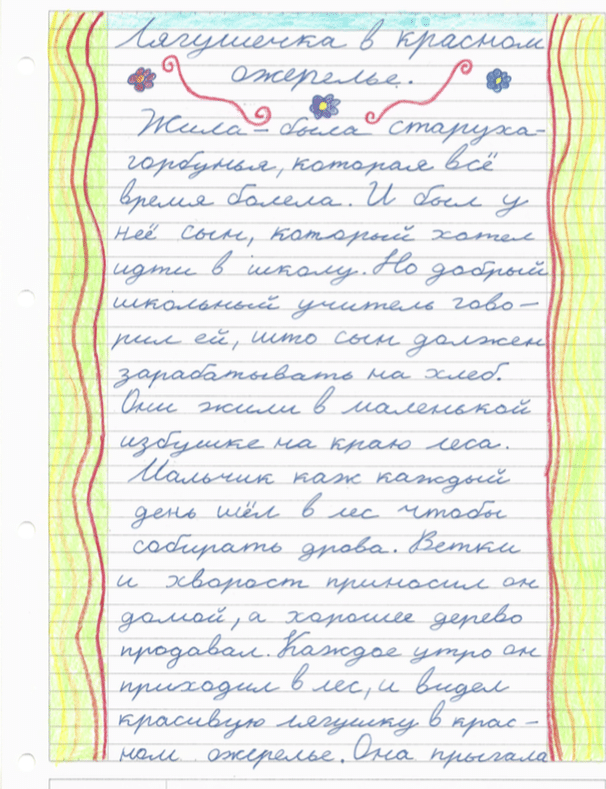 Лягушечка в красном
ожерелье.
Жила-была старуха-
горбунья, которая всё
время болела. И был у
неё сын, который хотел
идти в школу. Но добрый
школьный учитель гово-
рил ей, што сын должен
зарабатывать на хлеб.
Они жили в маленькой
избушке на краю леса.
Мальчик каж каждый
день шёл в лес чтобы
собирать дрова. Ветки
и хворост приносил он
домой, а хорошее дерево
продавал. Каждое утро он
приходил в лес, и видел
красивую лягушку в крас-
ном ожерелье. Она прыгала